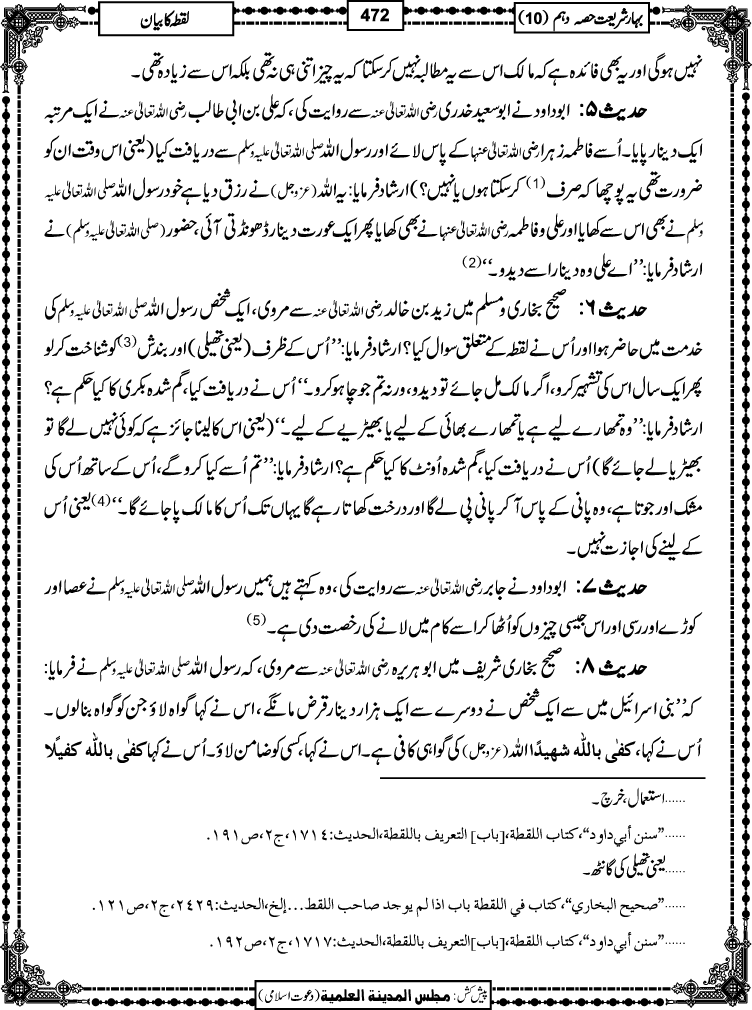 بہارِ شریعت حصہ دہم (10)
472
لقطہ کا بیان
نہیں ہوگی اور یہ بھی فائدہ ہے کہ مالک اس سے یہ مطالبہ نہیں کرسکتا کہ یہ چیز اتنی ہی نہ تھی بلکہ اس سے زیادہ تھی۔
حدیث ۵: ابوداود نے ابوسعید خدری رضی اللہ تعالٰی عنہ سے روایت کی، کہ علی بن ابی طالب رضی اللہ تعالٰی عنہ نے ایک مرتبہ
ایک دینار پایا۔ اُسے فاطمہ زہرا رضی اللہ تعالٰی عنہا کے پاس لائے اور رسول اللہ صلی اللہ تعالٰی علیہ وسلم سے دریافت کیا (یعنی اس وقت ان کو
ضرورت تھی یہ پوچھا کہ صرف (1) کرسکتا ہوں یا نہیں؟) ارشاد فرمایا: یہ اللہ (عزوجل) نے رزق دیا ہے خود رسول اللہ صلی اللہ تعالٰی علیہ
وسلم نے بھی اس سے کھایا اور علی و فاطمہ رضی اللہ تعالٰی عنہما نے بھی کھایا پھر ایک عورت دینار ڈھونڈتی آئی، حضور (صلی اللہ تعالٰی علیہ وسلم) نے
ارشاد فرمایا: ’’اے علی وہ دینار اسے دیدو۔‘‘ (2)
حدیث ۶: صحیح بخاری و مسلم میں زید بن خالد رضی اللہ تعالٰی عنہ سے مروی، ایک شخص رسول اللہ صلی اللہ تعالٰی علیہ وسلم کی
خدمت میں حاضر ہوا اور اُس نے لقطہ کے متعلق سوال کیا؟ ارشاد فرمایا: ’’اُس کے ظرف (یعنی تھیلی) اور بندش (3) کو شناخت کرلو
پھر ایک سال اس کی تشہیر کرو، اگر مالک مل جائے تو دیدو، ورنہ تم جو چاہو کرو۔‘‘ اُس نے دریافت کیا، گم شدہ بکری کا کیا حکم ہے؟
ارشاد فرمایا: ’’وہ تمھارے لیے ہے یا تمھارے بھائی کے لیے یا بھیڑیے کے لیے۔‘‘ (یعنی اس کا لینا جائز ہے کہ کوئی نہیں لے گا تو
بھیڑیا لے جائے گا) اُس نے دریافت کیا، گم شدہ اُونٹ کا کیا حکم ہے؟ ارشاد فرمایا: ’’تم اُسے کیا کرو گے، اُس کے ساتھ اُس کی
مشک اور جوتا ہے، وہ پانی کے پاس آکر پانی پی لے گا اور درخت کھاتا رہے گا یہاں تک اُس کا مالک پا جائے گا۔‘‘ (4) یعنی اُس
کے لینے کی اجازت نہیں۔
حدیث ۷: ابوداود نے جابر رضی اللہ تعالٰی عنہ سے روایت کی، وہ کہتے ہیں ہمیں رسول اللہ صلی اللہ تعالٰی علیہ وسلم نے عصا اور
کوڑے اور رسی اور اس جیسی چیزوں کو اُٹھا کر اسے کام میں لانے کی رخصت دی ہے۔ (5)
حدیث ۸: صحیح بخاری شریف میں ابو ہریرہ رضی اللہ تعالٰی عنہ سے مروی، کہ رسول اللہ صلی اللہ تعالٰی علیہ وسلم نے فرمایا:
کہ ’’بنی اسرائیل میں سے ایک شخص نے دوسرے سے ایک ہزار دینار قرض مانگے، اس نے کہا گواہ لاؤ جن کو گواہ بنالوں۔
اُس نے کہا، کفٰی باللّٰہ شھیدًا اللہ (عزوجل) کی گواہی کافی ہے۔ اس نے کہا، کسی کو ضامن لاؤ۔ اُس نے کہا کفٰی باللّٰہ کفیلًا
......استعمال، خرچ۔
......”سنن أبي داود“، كتاب اللقطة، [باب] التعريف باللقطة، الحديث: ١٧١٤، ج٢، ص١٩١.
......یعنی تھیلی کی گانٹھ۔
......”صحيح البخاري“، كتاب في اللقطة باب اذا لم يوجد صاحب اللقط...إلخ، الحديث: ٢٤٢٩، ج٢، ص١٢١.
......”سنن أبي داود“، كتاب اللقطة، [باب] التعريف باللقطة، الحديث: ١٧١٧، ج٢، ص١٩٢.
پیش کش: مجلس المدينة العلمية (دعوت اسلامی)